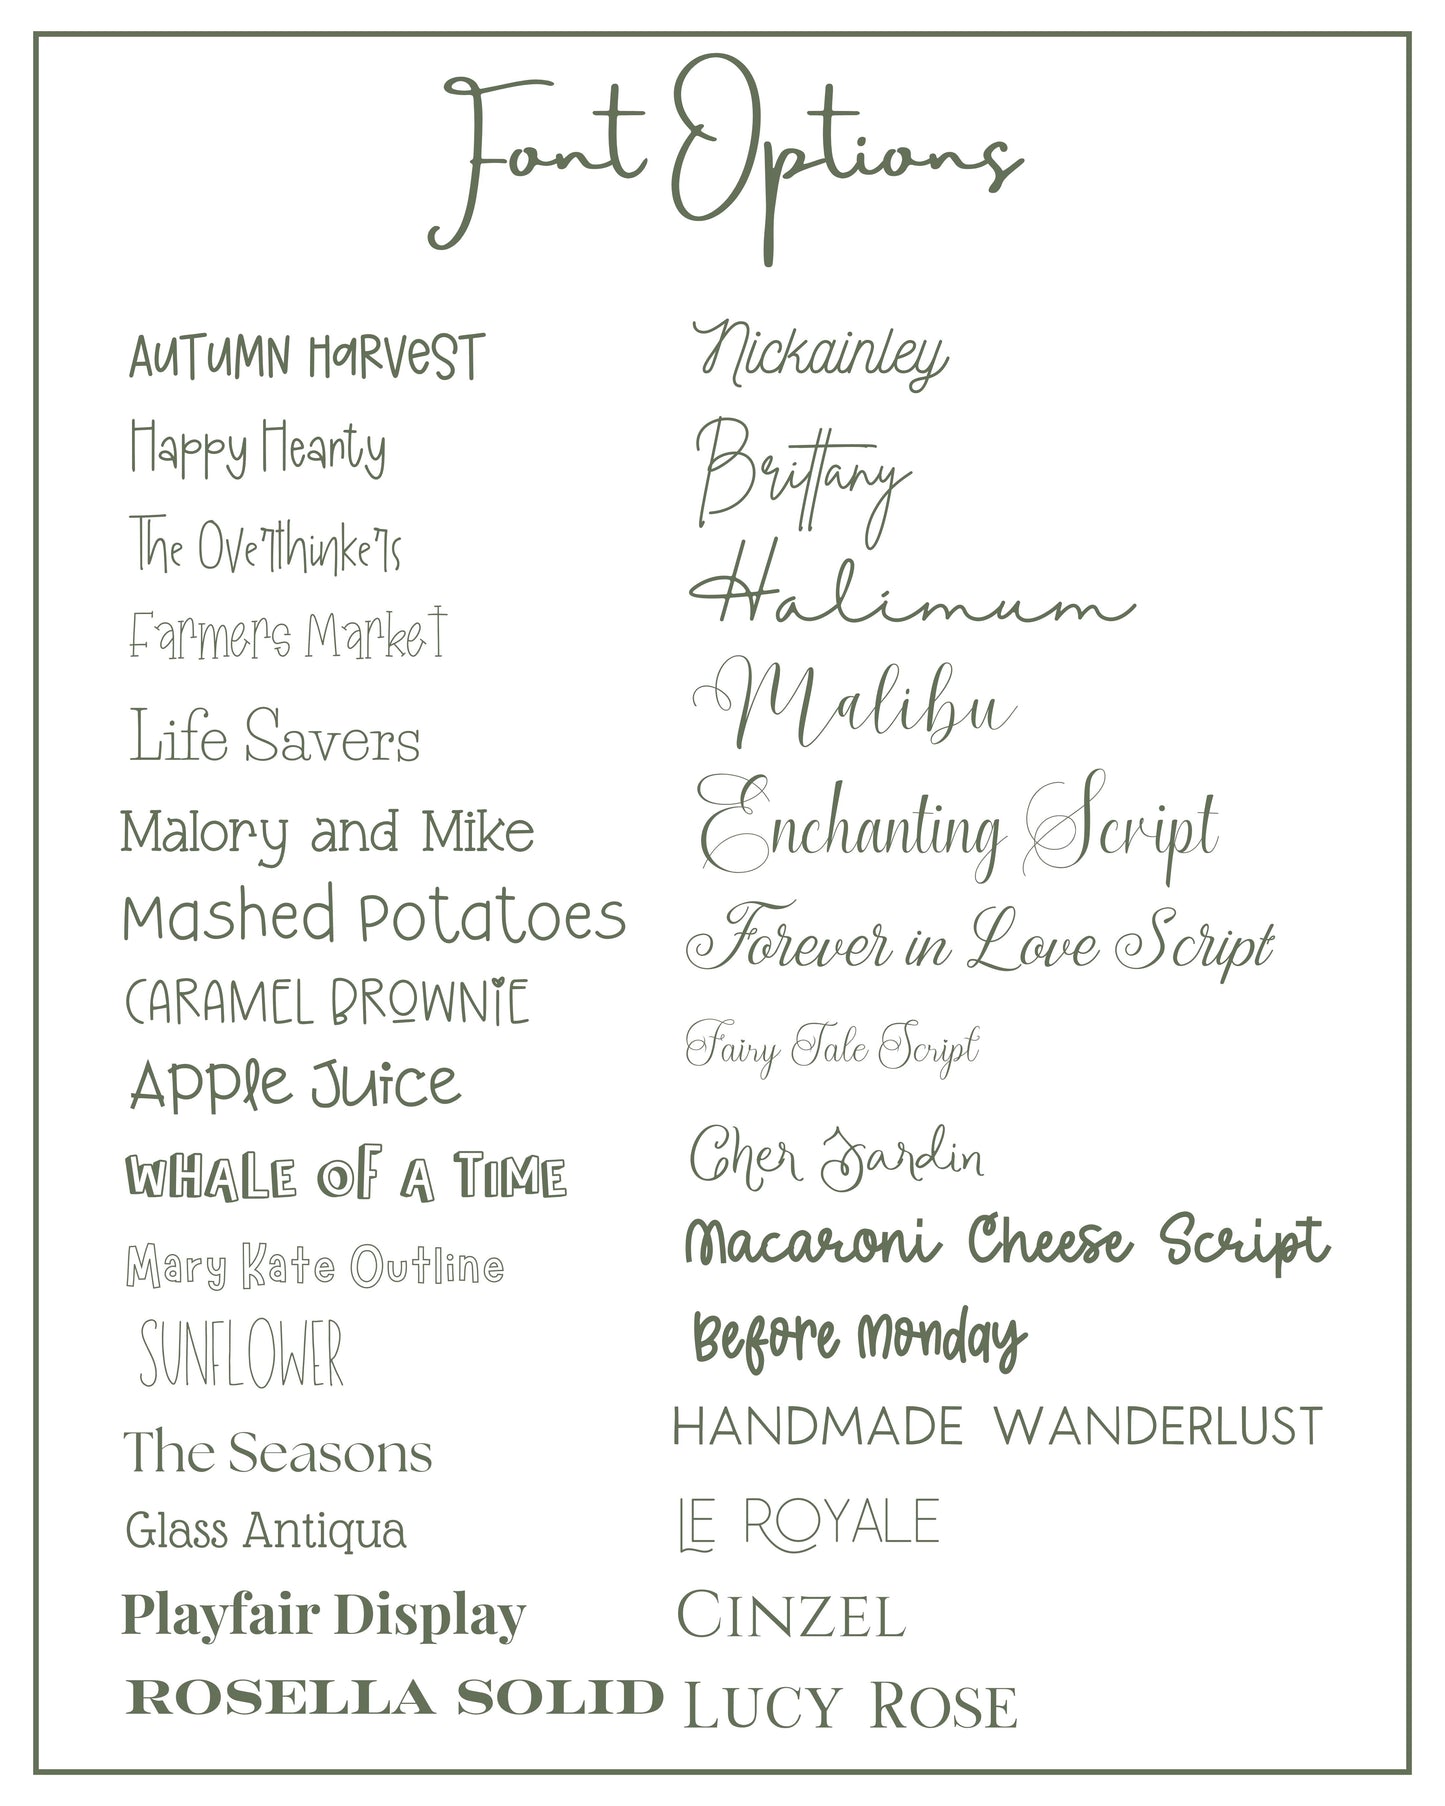 Font Options
AUTUMN HARVEST
Happy Hearty
The Overthinkers
Farmers Market
Life Savers
Malory and Mike
Mashed Potatoes
CARAMEL BROWNIE
Apple Juice
WHALE OF A TIME
Mary Kate Outline
SUNFLOWER
The Seasons
Glass Antiqua
Playfair Display
ROSELLA SOLID
Nickainley
Brittany
Halimum
Malibu
Enchanting Script
Forever in Love Script
Fairy Tale Script
Cher Jardin
Macaroni Cheese Script
Before Monday
HANDMADE WANDERLUST
LE ROYALE
CINZEL
LUCY ROSE